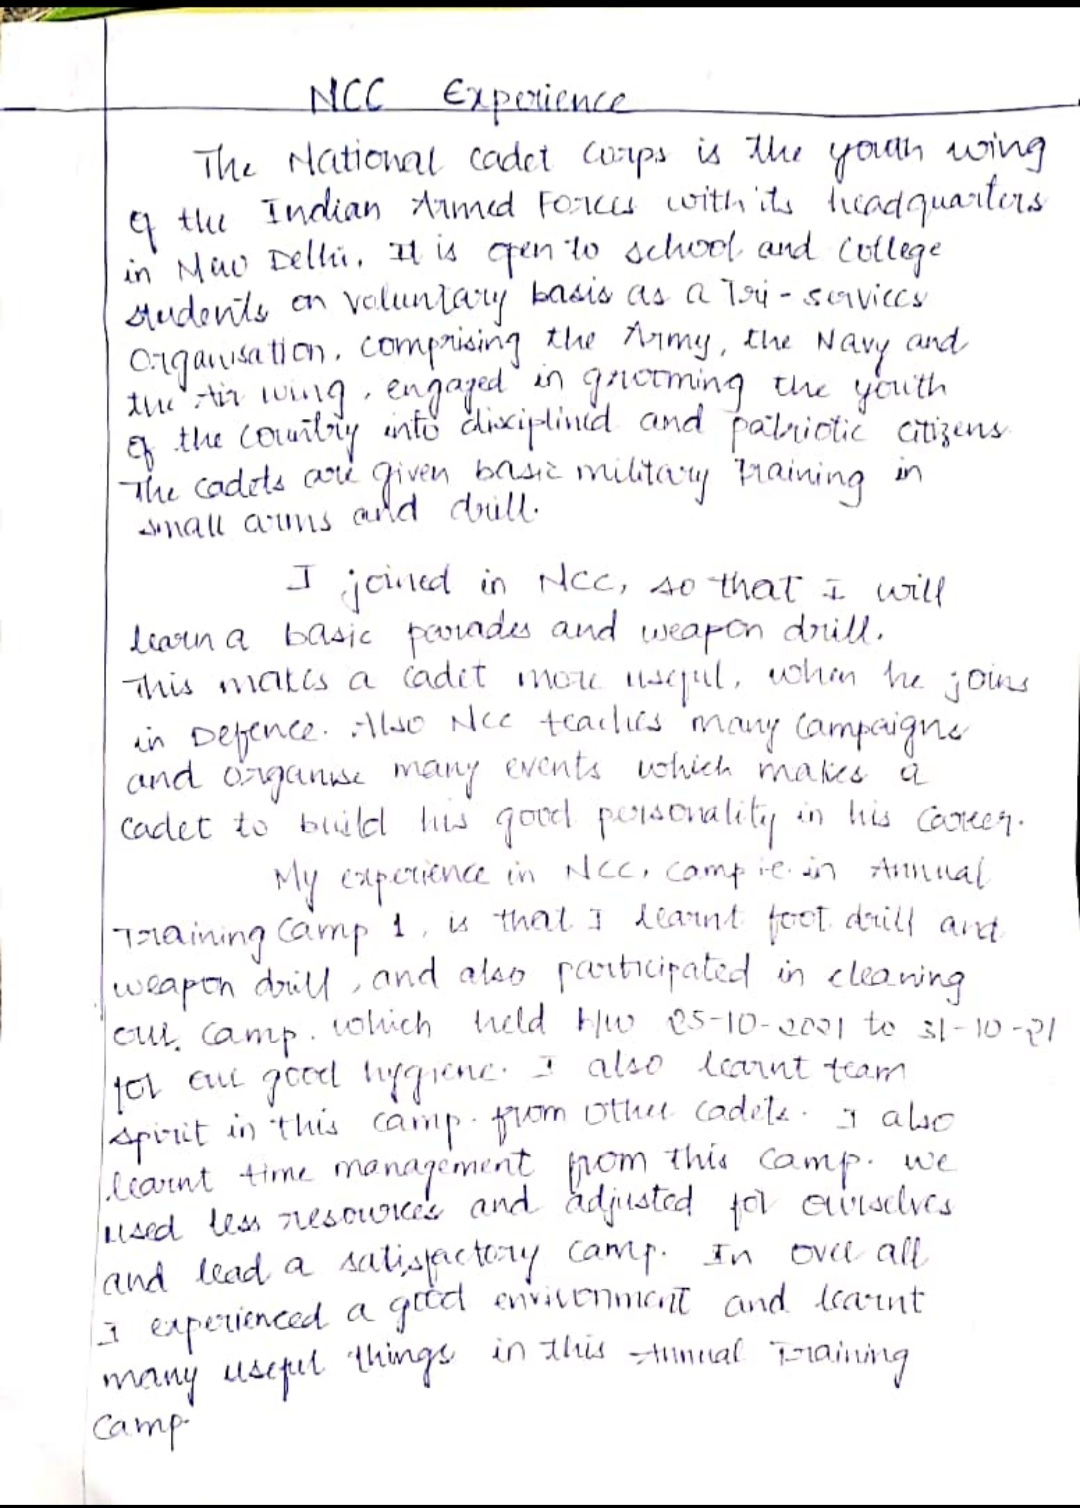 NCC Experience
The National cadet corps is the youth wing
of the Indian Armed Forces with its headquarters
in New Delhi. It is open to school and College
students on voluntary basis as a Tri-services
Organisation, comprising the Army, the Navy and
the Air wing, engaged in grooming the youth
of the country into disciplined and patriotic citizens
The cadets are given basic military Training in
small arms and drill.
I joined in NCC, so that I will
learn a basic parades and weapon drill.
This makes a cadet more useful, when he joins
in Defence. Also NCC teaches many campaigns
and organise many events which makes a
cadet to build his good personality in his career.
My experience in NCC, camp i.e. in Annual
Training Camp 1, is that I learnt foot drill and
weapon drill, and also participated in cleaning
our camp. which held b/w 25-10-2021 to 31-10-21
for our good hygiene. I also learnt team
spirit in this camp. from other cadets. I also
learnt time management from this camp. we
used less resources and adjusted for ourselves
and lead a satisfactory camp. In over all
I experienced a good environment and learnt
many useful things in this Annual Training
Camp.